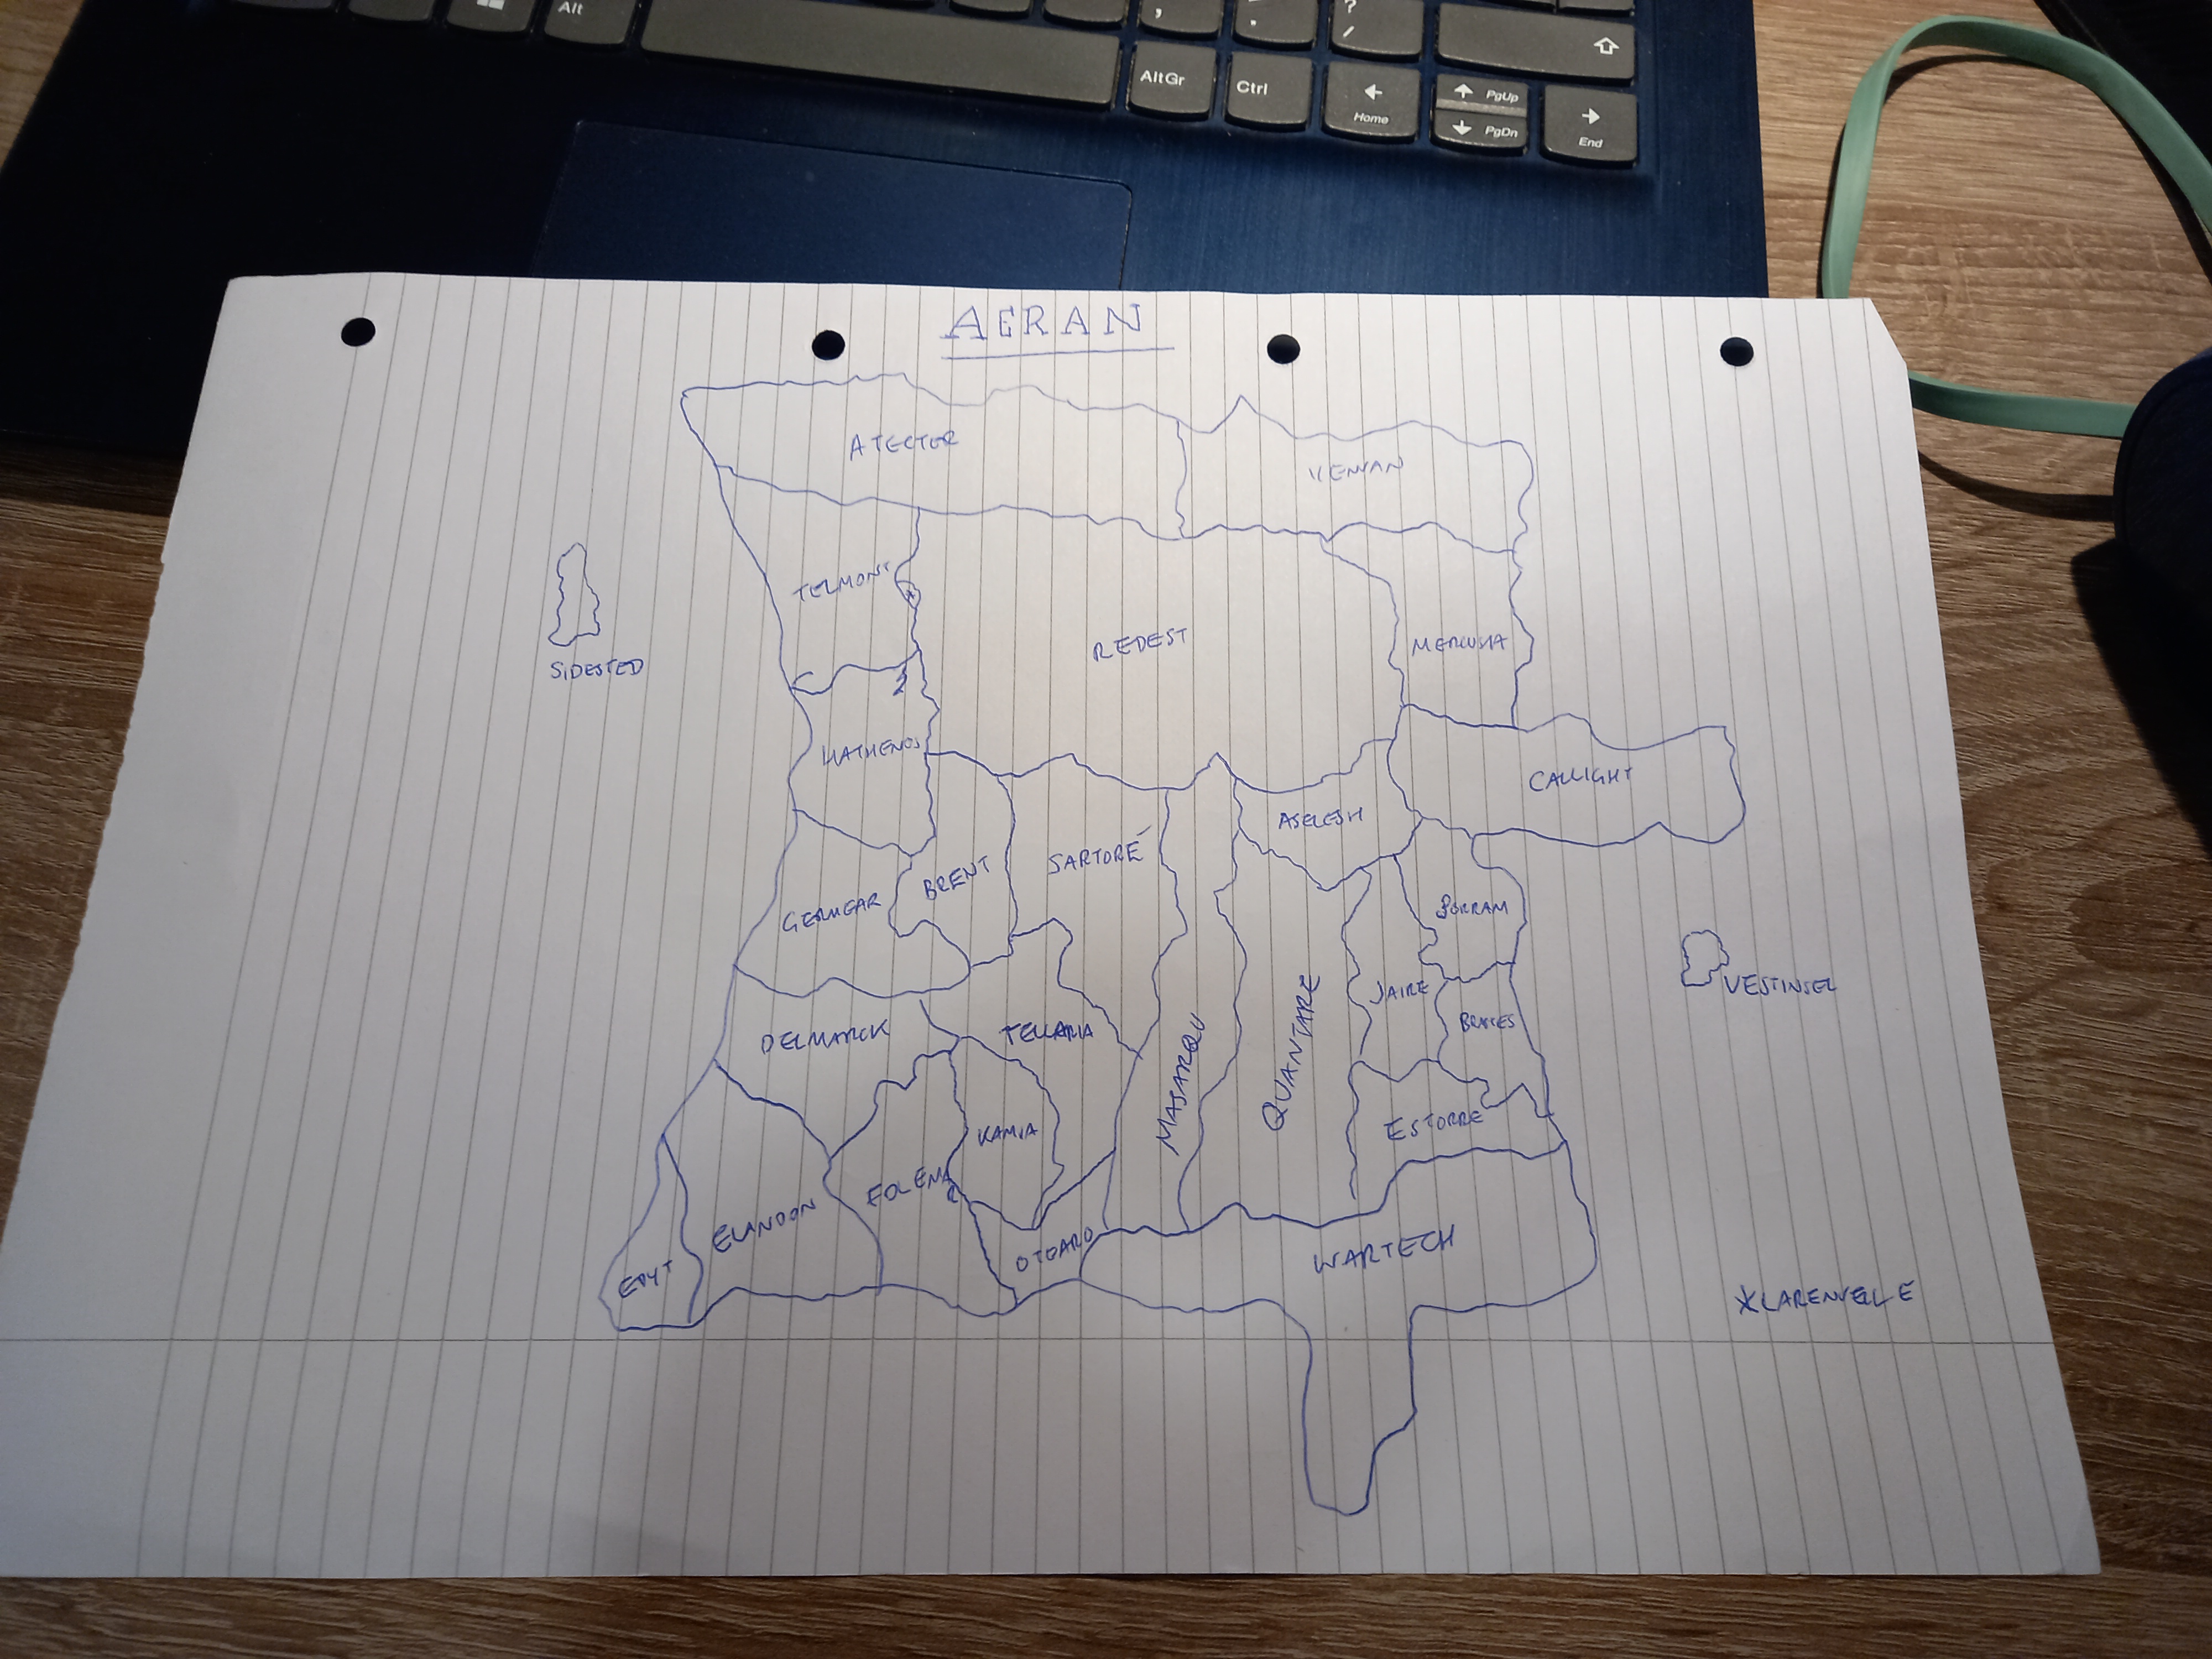 Alt
AltGr
Ctrl
Home
PgUp
PgDn
End
, ;
? /
AERAN
ATECTER
VENVAN
TELMONT
REDEST
MERCUSIA
SIDESTED
HATHENOS
CALLIGHT
ASELESH
SARTORÉ
BRENT
GERMEAR
BORRAM
VESTINSEL
JAIRE
QUANTARE
BRACES
DELMARCK
TELLARIA
MASARQU
ESTORRE
KAMIA
EOLENA
ELANDON
OTGARO
WARTECH
EPYT
KLARENVELLE